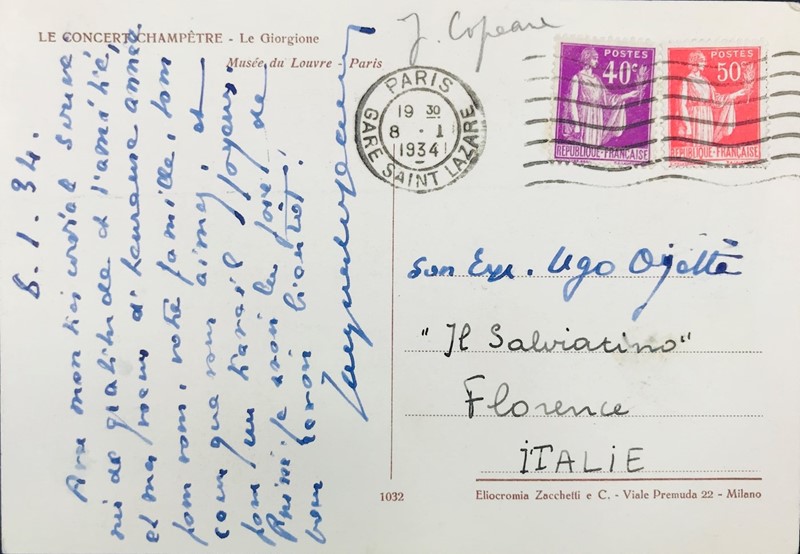 LE CONCERT CHAMPÊTRE - Le Giorgione
Musée du Louvre - Paris
J. Copeau
8.1.34.
Avec mon très cordial souve
nir de gratitude et d'amitié,
et mes vœux d'heureuse année
pour vous, votre famille, tous
ceux que vous aimez, et
pour un travail joyeux.
Puissé-je avoir la joie de
vous revoir bientôt!
Jacques Copeau
PARIS
GARE SAINT LAZARE
19 30
8 · 1
1934
POSTES
40c
REPUBLIQUE-FRANÇAISE
POSTES
50c
REPUBLIQUE-FRANÇAISE
Son Exc. Ugo Ojetti
"Il Salviatino"
Florence
ITALIE
1032
Eliocromia Zacchetti e C. - Viale Premuda 22 - Milano